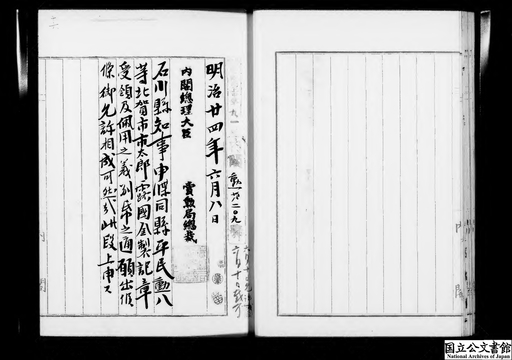 明治廿四年六月八日
内閣總理大臣
賞勲局総裁
石川縣知事申牒同縣平民勲八
等北賀市市太郎露國金製記章
受領及佩用之義別紙之通願出候
條御允許相成可然哉此段上申ス
勲一ノ二〇九
国立公文書館
National Archives of Japan